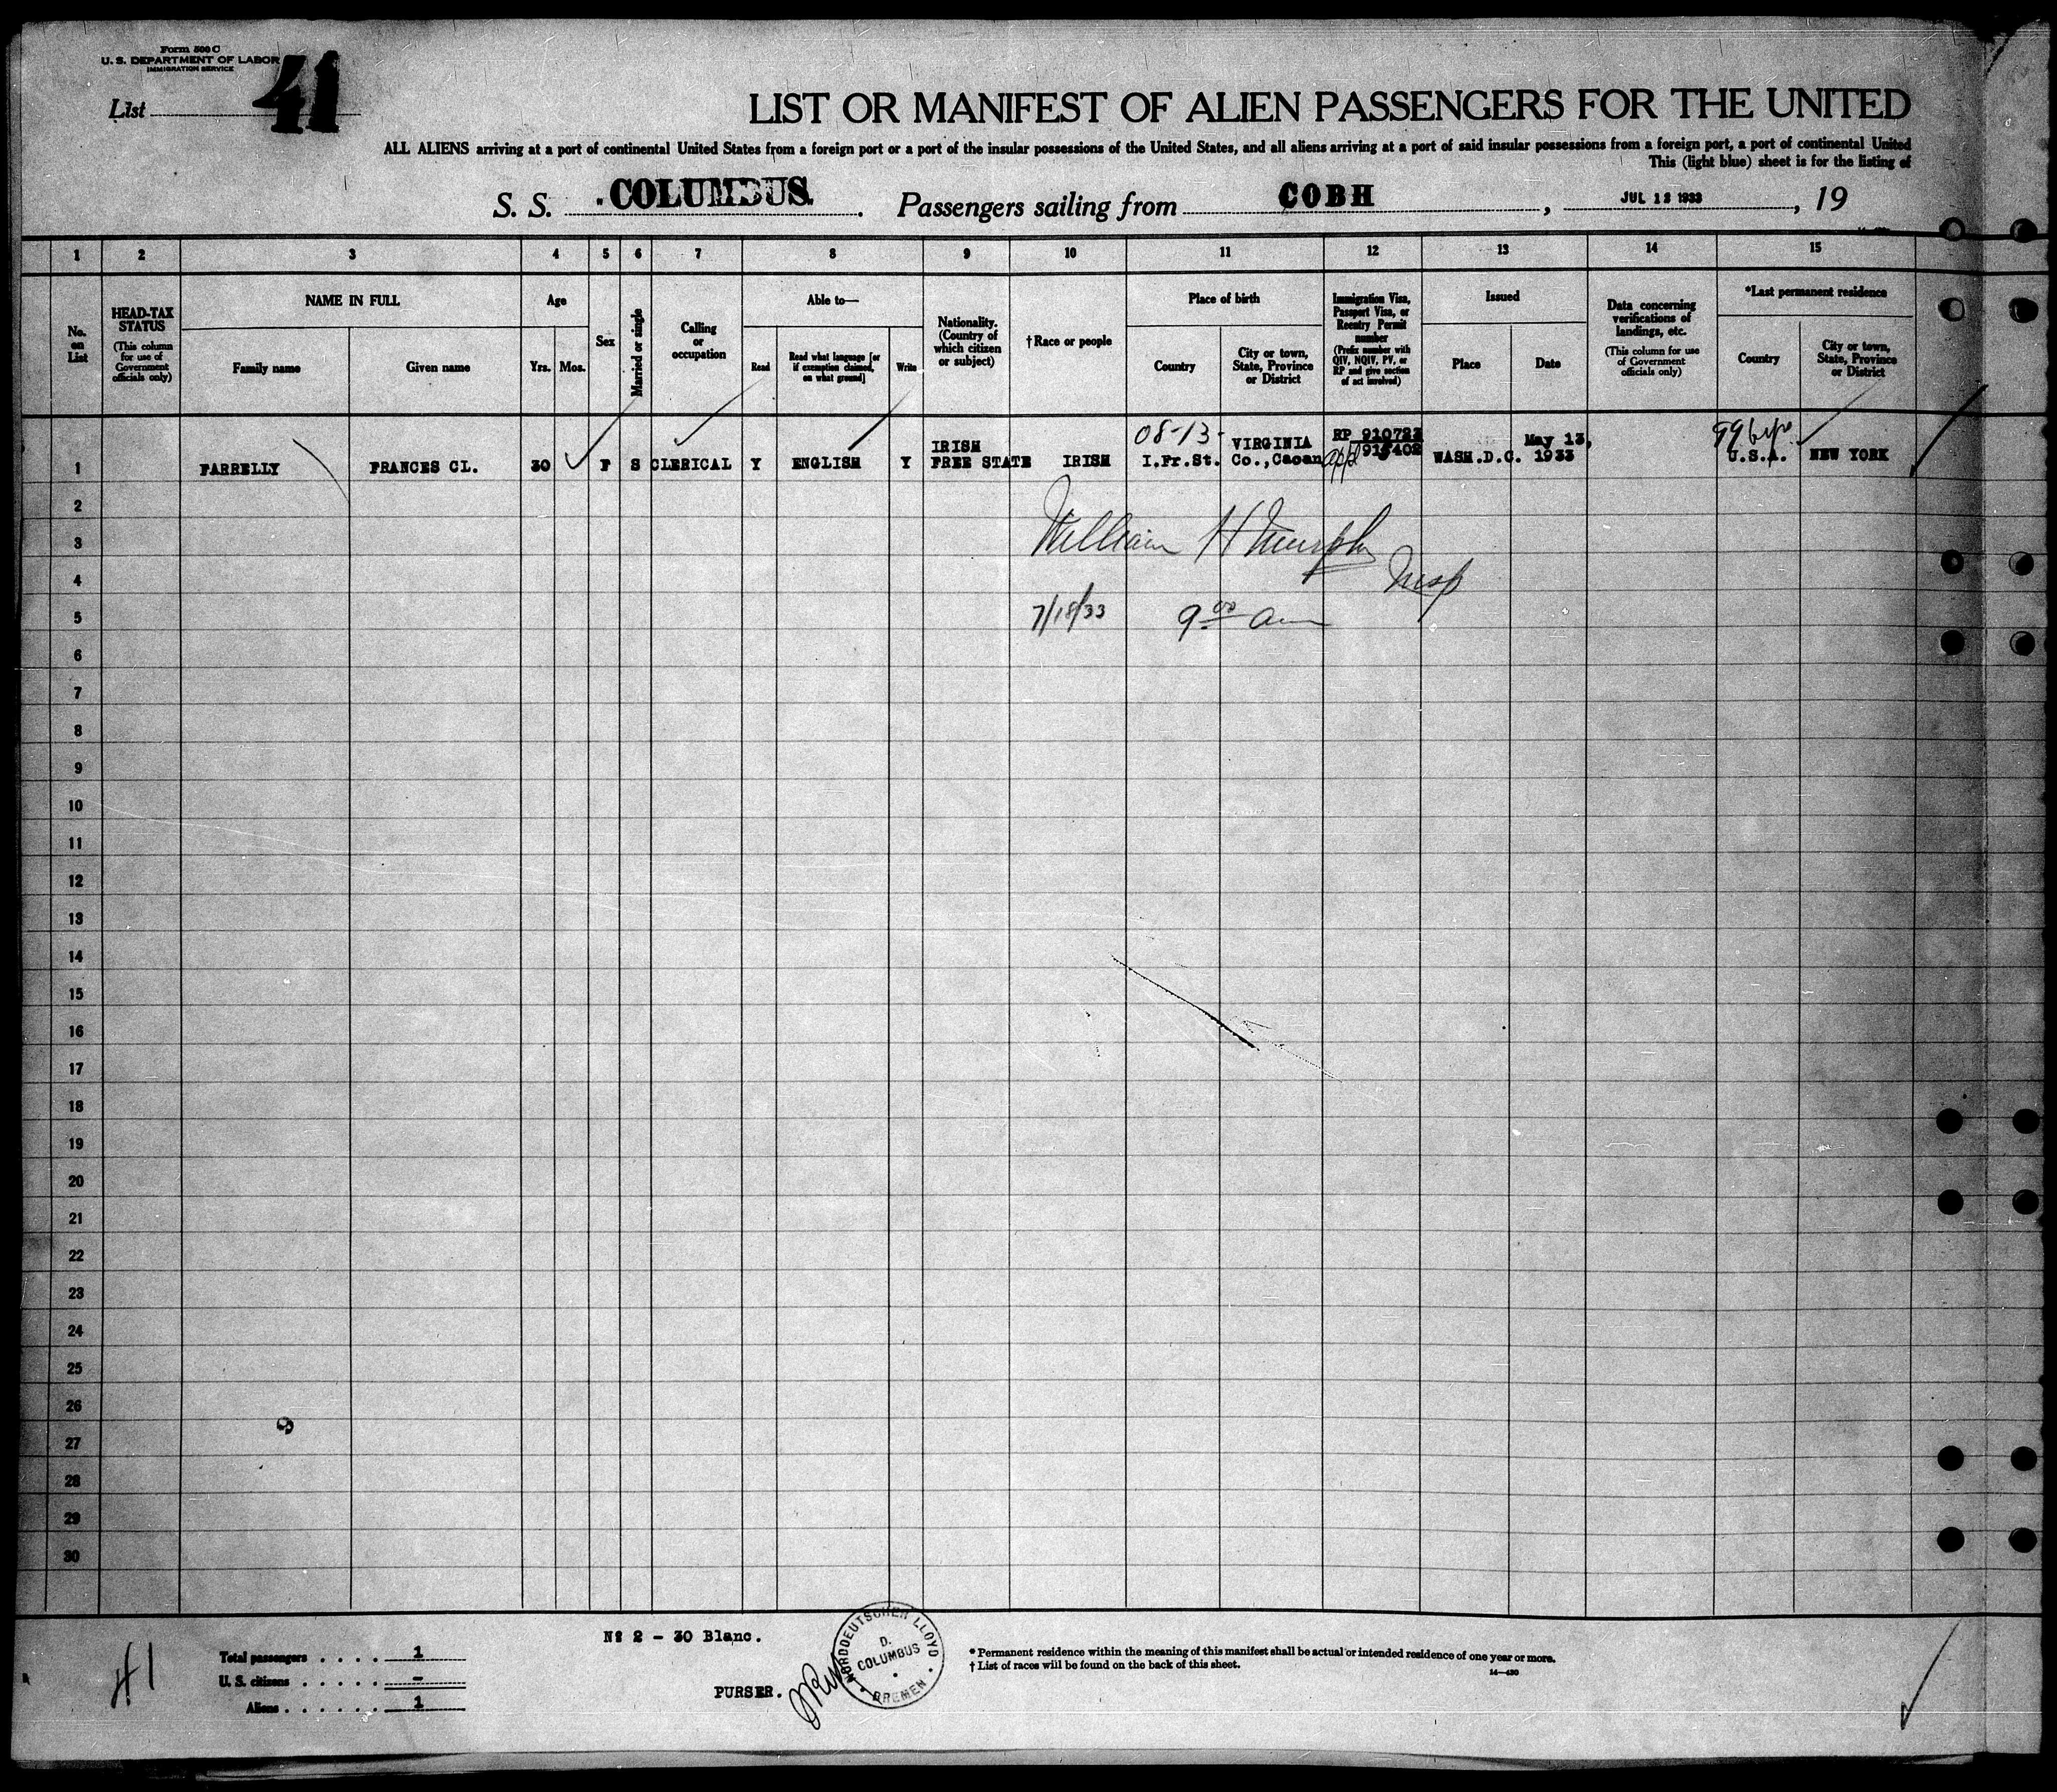 Form 500 C
U. S. DEPARTMENT OF LABOR
IMMIGRATION SERVICE
List 41
LIST OR MANIFEST OF ALIEN PASSENGERS FOR THE UNITED
ALL ALIENS arriving at a port of continental United States from a foreign port or a port of the insular possessions of the United States, and all aliens arriving at a port of said insular possessions from a foreign port, a port of continental United
This (light blue) sheet is for the listing of
S. S. COLUMBUS. Passengers sailing from COBH, JUL 12 1933, 19
1 2 3 4 5 6 7 8 9 10 11 12 13 14 15
No. on List
HEAD-TAX STATUS
(This column for use of Government officials only)
NAME IN FULL
Family name
Given name
Age
Yrs.
Mos.
Sex
Married or single
Calling or occupation
Able to—
Read
Read what language [or if exemption claimed, on what ground]
Write
Nationality. (Country of which citizen or subject)
†Race or people
Place of birth
Country
City or town, State, Province or District
Immigration Visa, Passport Visa, or Reentry Permit number
(Prefix number with QIV, NQIV, PV, or RP and give section of act involved)
Issued
Place
Date
Data concerning verifications of landings, etc.
(This column for use of Government officials only)
*Last permanent residence
Country
City or town, State, Province or District
08-13- VIRGINIA RP 910723 May 13,
IRISH
1 FARRELLY FRANCES CL. 30 F S CLERICAL Y ENGLISH Y FREE STATE IRISH I.Fr.St. Co.,Caoan app 915402 WASH.D.C. 1933 U.S.A. NEW YORK
2
William H Murphy
3
Insp
4
7/18/33 9 00 am
5
6
7
8
9
10
11
12
13
14
15
16
17
18
19
20
21
22
23
24
25
26
27
28
29
30
41
Total passengers . . . . 1
U. S. citizens . . . . . –
Aliens . . . . . . 1
Nº 2 - 30 Blanc.
PURSER.
NORDDEUTSCHER LLOYD
D. COLUMBUS
BREMEN
* Permanent residence within the meaning of this manifest shall be actual or intended residence of one year or more.
† List of races will be found on the back of this sheet.
14—430